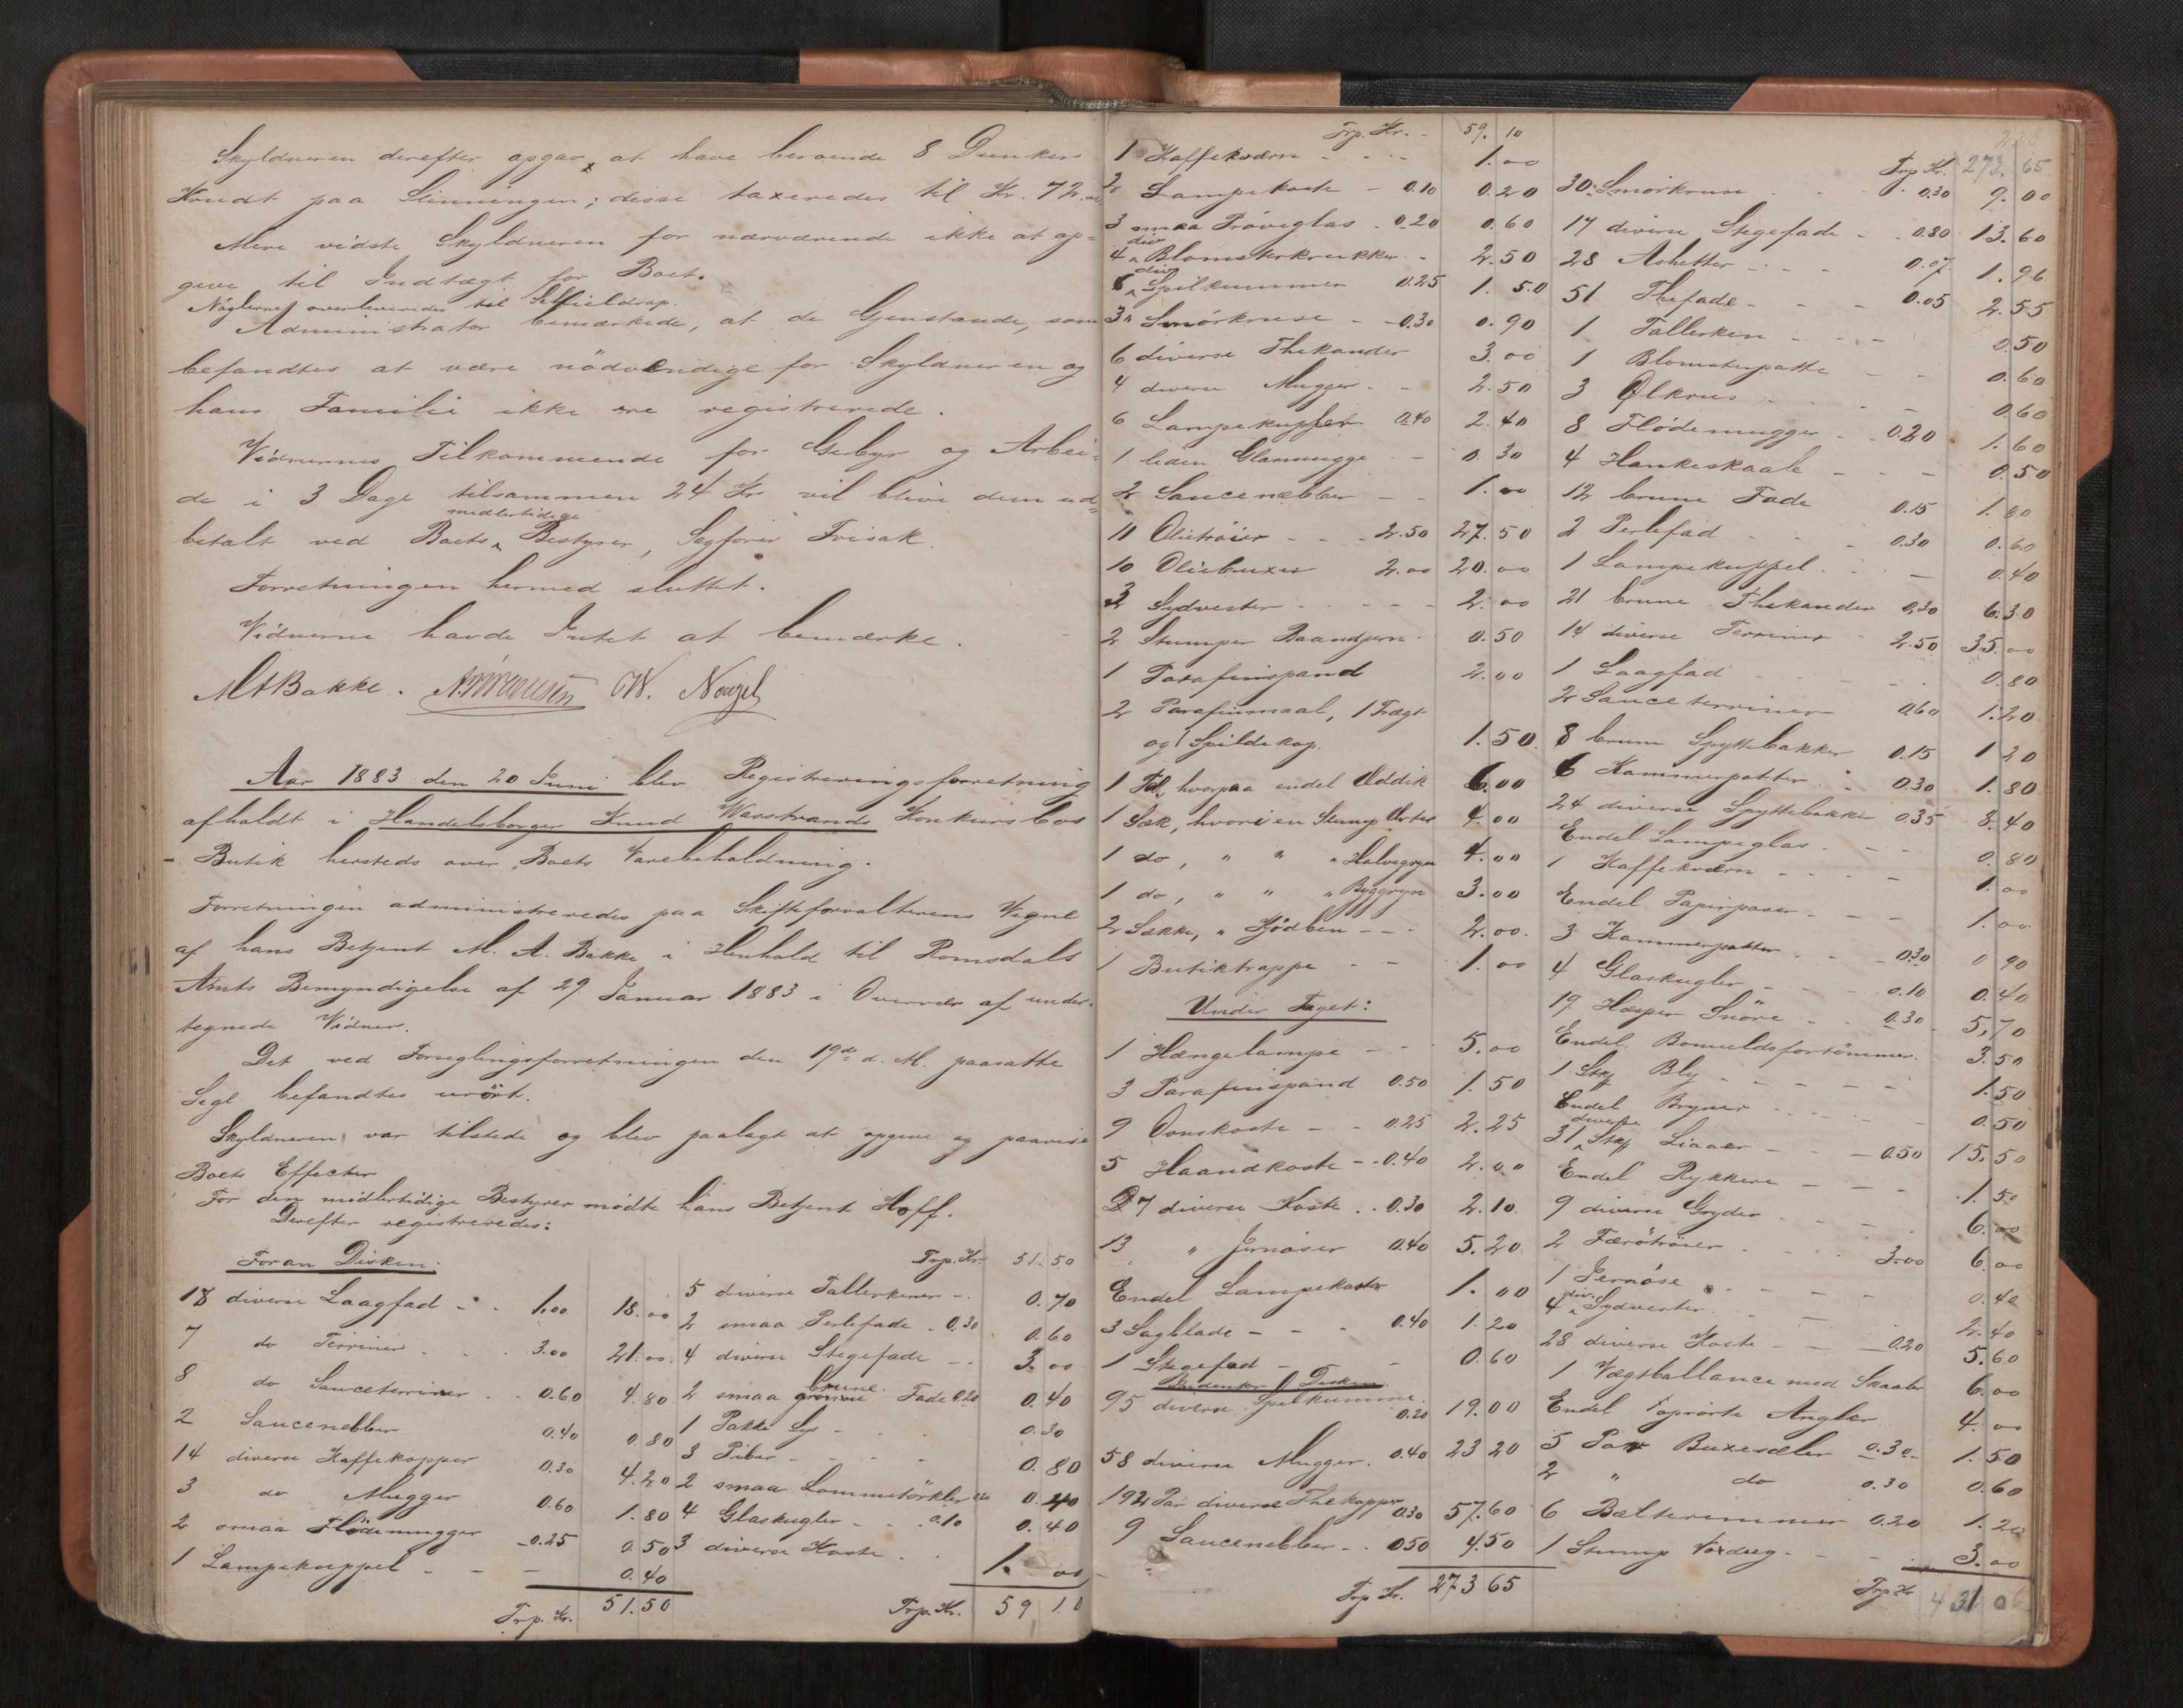 Skyldneren derefter opgav at have beroende 8 Dunker
Krudt paa Slinningen; disse taxeredes til Kr. 72.00
Mere vidste Skyldneren for nærværende ikke at op=
give til Indtægt for Boet.
Nøglerne overleveredes til
Administrator bemærkede, at de Gjenstande, som
befandtes at være nödvendige for Skyldneren og
hans Familie ikke ere registrerede.
Vidnernes Tilkommende for Gebyr og Arbei=
de i 3 Dage tilsammen 24 Kr vil blive dem ud=
betalt ved Boets midlertidige Bestyrer, Sagfører Frisak.
Forretningen hermed sluttet.
Vidnerne havde Intet at bemærke.
MABakke. OW. Nougel
Aar 1883 den 20 Juni blev Registreringsforretning
afholdt i Handelsborger Knud Wasstrands Konkursbos
Butik hersteds over Boets Varebeholdning.
Forretningen administreredes paa Skifteforvalterens Vegne
af hans Betjent M. A. Bakke i Henhold til Romsdals
Amts Bemyndigelse af 29 Januar 1883 i Overvær af under=
tegnede Vidner.
Det ved Forseglingsforretningen den 19de d. M. paasatte
Segl befandtes urört.
Skyldneren var tilstede og blev paalagt at opgive og paavise
Boets Effecter
For den midlertidige Bestyrer mødte hans Betjent Hoff.
Derefter registreredes:
Foran Disken:
18 diverse Laagfad 1.00 18.00
7 do Terriner 3.00 21.00
8 do Sauceterriner 0.60 4.80
2 Saucenebber 0.40 0 80
14 diverse Kaffekopper 0.30 4.20
3 do Mugger 0.60 1.80
2 smaa Flödemugger 0.25 0.50
1 Lampekuppel 0.40
Trp. Kr. 51.50
Trp. Kr. 51.50
5 diverse Tallerkener 0.70
2 smaa Perlefade 0.30 0.60
4 diverse Stegefade 3.00
2 smaa brune Fade 0.20 0.40
1 Pakke Lys 0.30
3 Piber 0.80
2 smaa Lommetörklær 0.20 0.40
4 Glaskugler 0.10 0.40
3 diverse Koste 1.00
Trp. Kr. 59 10
Trp. Kr. 59.10
1 Kaffekværn 1.00
2 Lampekoste 0.10 0.20
3 smaa Prøveglas 0.20 0.60
4 div Blomsterkrukker 2.50
6 div Spilkummer 0.25 1.50
3 Smörkruse 0.30 0.90
6 diverse Thekander 3.00
4 diverse Mugger 2.50
6 Lampekupler 0.40 2.40
1 liden Glasmugge 0.30
2 Saucenæbber 1.00
11 Olietröier 2.50 27.50
10 Oliebuxer 2.00 20.00
3 Sydvester 2.00
2 Stumper Baandjern 0.50
1 Parafinspand 2.00
2 Parafinmaal, 1 Tragt
og 1 Spildekop. 1.50
1 Fd., hvorpaa endel Eddik 6.00
1 Sæk, hvori en Slump Erter 4.00
1 do, " " " Halvegryn 4.00
1 do, " " " Byggryn 3.00
2 Sække, " Kjødben 2.00
1 Butiktrappe 1.00
Under Taget:
1 Hængelampe 5.00
3 Parafinspand 0.50 1.50
9 Ovnskoste 0.25 2.25
5 Haandkoste 0.40 2.00
7 diverse Koste 0.30 2.10
13 " Jernøser 0.40 5.20
Endel Lampekoster 1.00
3 Sagblade 0.40 1.20
1 Stegefad 0.60
Indenfor Disken
95 diverse Spilkumme 0.20 19.00
58 diverse Mugger 0.40 23 20
192 Par diverse Thekopper 0.30 57.60
9 Saucenebber 0.50 4.50
Trp Kr. 273 65
Trp Kr. 273.65
30 Smörkruse 0.30 9.00
17 diverse Stegefade 0.80 13.60
28 Ashetter 0.07 1.96
51 Thefade 0.05 2.55
1 Tallerken 0.50
1 Blomsterpotte 0.60
3 Ølkrus 0.60
8 Flödemugger 0.20 1.60
4 Hankeskaale 0.50
12 brune Fade 0.15 1.80
2 Perlefad 0.30 0.60
1 Lampekuppel 0.40
21 brune Thekander 0.30 6.30
14 diverse Terriner 2.50 35.00
1 Laagfad 0.80
2 Sauceterriner 0.60 1.20
8 brune Spyttebakker 0.15 1 20
6 Kammerpotter 0.30 1.80
24 diverse Spyttebakker 0.35 8.40
Endel Lampeglas 0.80
1 Kaffekværn 1.00
Endel Papirposer 1.00
3 Kammerpotter 0.30 0 90
4 Glaskugler 0.10 0.40
19 Hasper Snöre 0.30 5,70
Endel Bomuldsfortömmer 3.50
1 Stk Bly 1.50
Endel Bryner 0.50
31 diverse Stk Liaaer 0.50 15.50
Endel Rykkere 1.50
9 diverse Gryder 6.00
2 Færötröier 3.00 6.00
1 Jernöse 0.40
4 div. Sydvester 2.40
28 diverse Koste 0.20 5.60
1 Vægtballance med Skaaler 6.00
Endel Angler 4.00
5 Par Buxesæler 0.30 1.50
2 " do 0.30 0.60
6 Bælteremmer 0.20 1.20
1 Stump Voxdug 3.00
Trp Kr 431 06